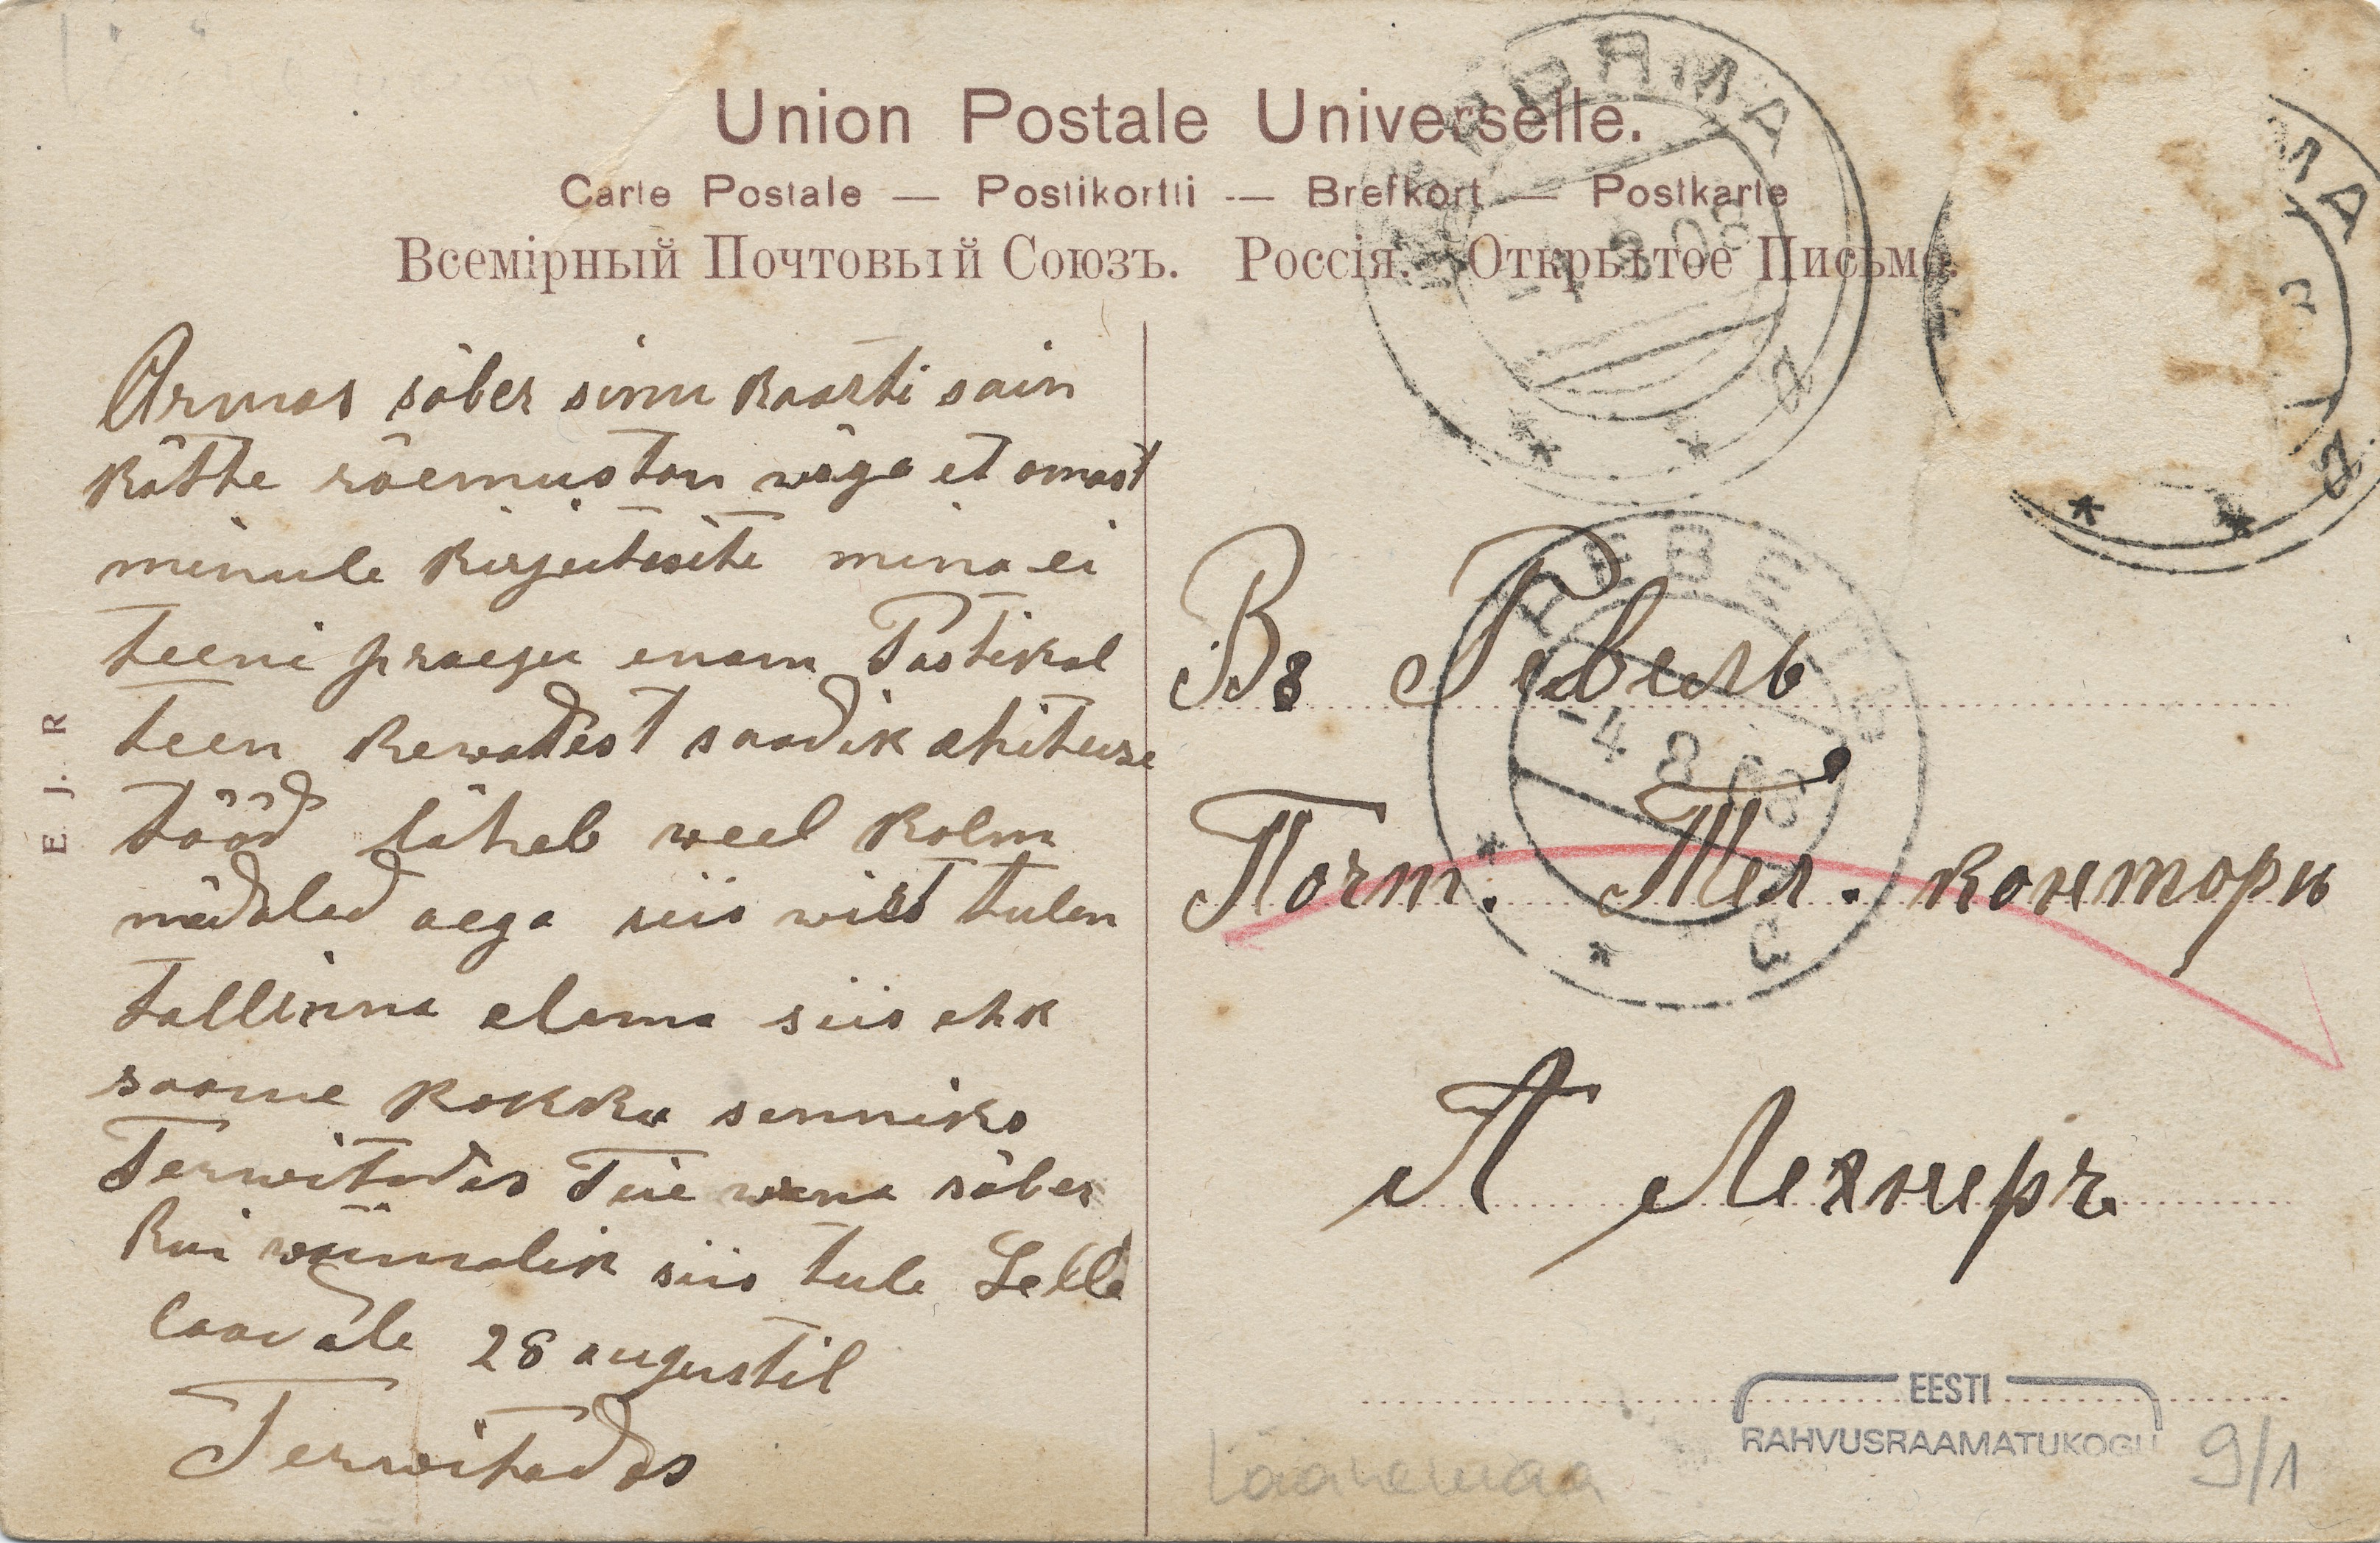 Union Postale Universelle.
Carte Postale — Postikortti — Brefkort — Postkarte
Всемірный Почтовый Союзъ. Россія. Открытое Письмо.
Armas sõber sinu kaarti sain
kätte rõemustan wäga et omast
minule kirjutasite mina ei
teeni praegu enam Pastikal
teen kewadest saadik ehituse
tööd läheb weel kolm
nädalad aega siis wist tulen
tallinna elama siis ehk
saame kokku senniks
Terwitades Teie wana sõber
kui wõimalik siis tule Lelle
laadale 28 augustil
Terwitades
E. J. R
Въ Ревель
Почт. Тел. конторы
А Лехнеръ
РЕВЕЛЬ
-4 8 08
с
* *
МА
а
* *
а
* *
EESTI
RAHVUSRAAMATUKOGU
9/1
Läänemaa